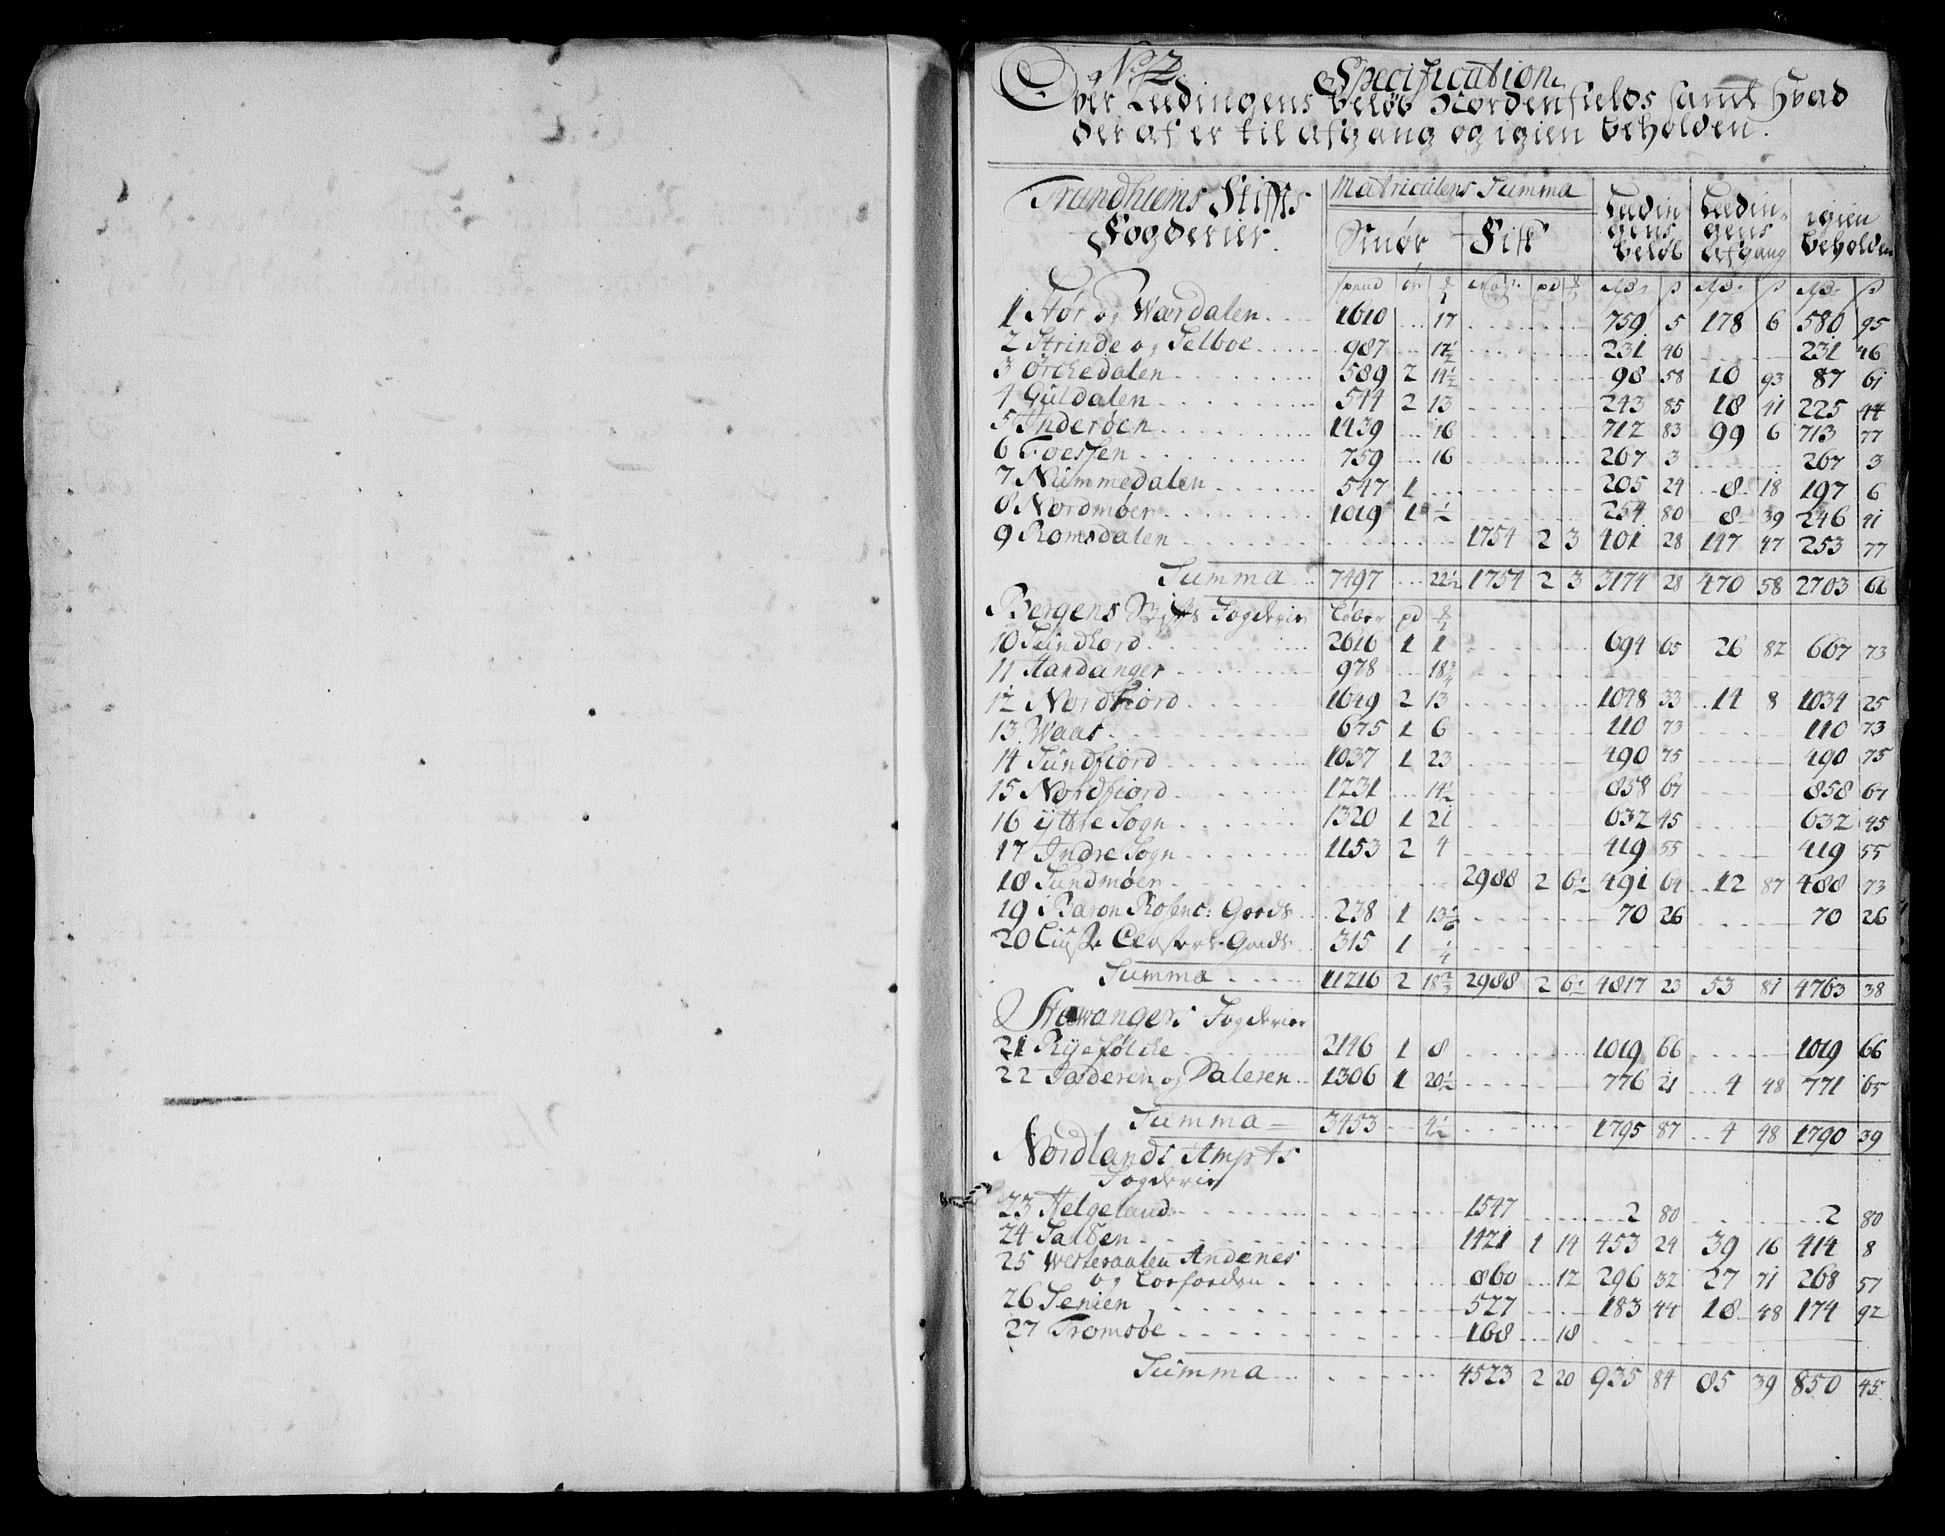 No 7
Specification
Over Leedingens beløb Nordenfields samt hvad
der af er til afgang og igien beholden.
Trundhiems Stiffts Fogderier. | Matriculens Summa | Leedin gens beløb | Leedin gens Afgang | igien beholden
Smør | Fisk
spand | ør | | | pd | | | ß | | ß | | ß
1 Stør og Værdalen | 1610 | ... | 17 | | | | 759 | 5 | 178 | 6 | 580 | 95
2 Strinde og Selboe | 987 | ... | 17½ | | | | 231 | 46 | | | 231 | 46
3 Ørchedalen | 589 | 2 | 14½ | | | | 98 | 58 | 10 | 93 | 87 | 61
4 Guldalen | 544 | 2 | 13 | | | | 243 | 85 | 18 | 41 | 225 | 44
5 Inderøen | 1439 | ... | 16 | | | | 712 | 83 | 99 | 6 | 713 | 77
6 Foessen | 759 | ... | 16 | | | | 267 | 3 | | | 267 | 3
7 Nummedalen | 547 | 1 | ... | | | | 205 | 24 | 8 | 18 | 197 | 6
8 Nordmøer | 1019 | 1 | ½ | | | | 254 | 80 | 8 | 39 | 246 | 41
9 Romsdalen | | | | 1754 | 2 | 3 | 401 | 28 | 147 | 47 | 253 | 77
Summa | 7497 | ... | 22½ | 1754 | 2 | 3 | 3174 | 28 | 470 | 58 | 2703 | 66
Bergens Stifts Fogderier | Løber | pd
10 Sundhord | 2616 | 1 | 1 | | | | 694 | 65 | 26 | 82 | 667 | 73
11 Hardanger | 978 | ... | 18¾
12 Nordhord | 1649 | 2 | 13 | | | | 1048 | 33 | 14 | 8 | 1034 | 25
13 Waas | 675 | 1 | 6 | | | | 110 | 73 | | | 110 | 73
14 Sundfiord | 1037 | 1 | 23 | | | | 490 | 75 | | | 490 | 75
15 Nordfiord | 1231 | ... | 14½ | | | | 858 | 67 | | | 858 | 67
16 yttre Sogn | 1320 | 1 | 21 | | | | 632 | 45 | | | 632 | 45
17 Indre Sogn | 1153 | 2 | 4 | | | | 419 | 55 | | | 419 | 55
18 Sundmøer | | | | 2988 | 2 | 6½ | 491 | 64 | 12 | 87 | 488 | 73
19 Baron Rosenc: Gods | 238 | 1 | 13 | | | | 70 | 26 | | | 70 | 26
20 Lyse Closters Gods | 315 | 1 | ¼
Summa | 11216 | 2 | 18⅔ | 2988 | 2 | 6½ | 4817 | 23 | 53 | 81 | 4763 | 38
Stawangers Fogderier
21 Ryefølche | 2146 | 1 | 8 | | | | 1019 | 66 | | | 1019 | 66
22 Jæderen og Daleren | 1306 | 1 | 20½ | | | | 776 | 21 | 4 | 48 | 771 | 65
Summa | 3453 | ... | 4½ | | | | 1795 | 87 | 4 | 48 | 1790 | 39
Nordlands Ampts
Fogderier
23 Helgeland | | | | 1547 | | | 2 | 80 | | | 2 | 80
24 Salten | | | | 1421 | 1 | 14 | 453 | 24 | 39 | 16 | 414 | 8
25 Westeraalen Andenes
og Lofoeden | | | | 860 | ... | 12 | 296 | 32 | 27 | 71 | 268 | 57
26 Senien | | | | 527 | | | 183 | 44 | 18 | 48 | 174 | 92
27 Tromsøe | | | | 168 | ... | 18
Summa | | | | 4523 | 2 | 20 | 935 | 84 | 85 | 39 | 850 | 45